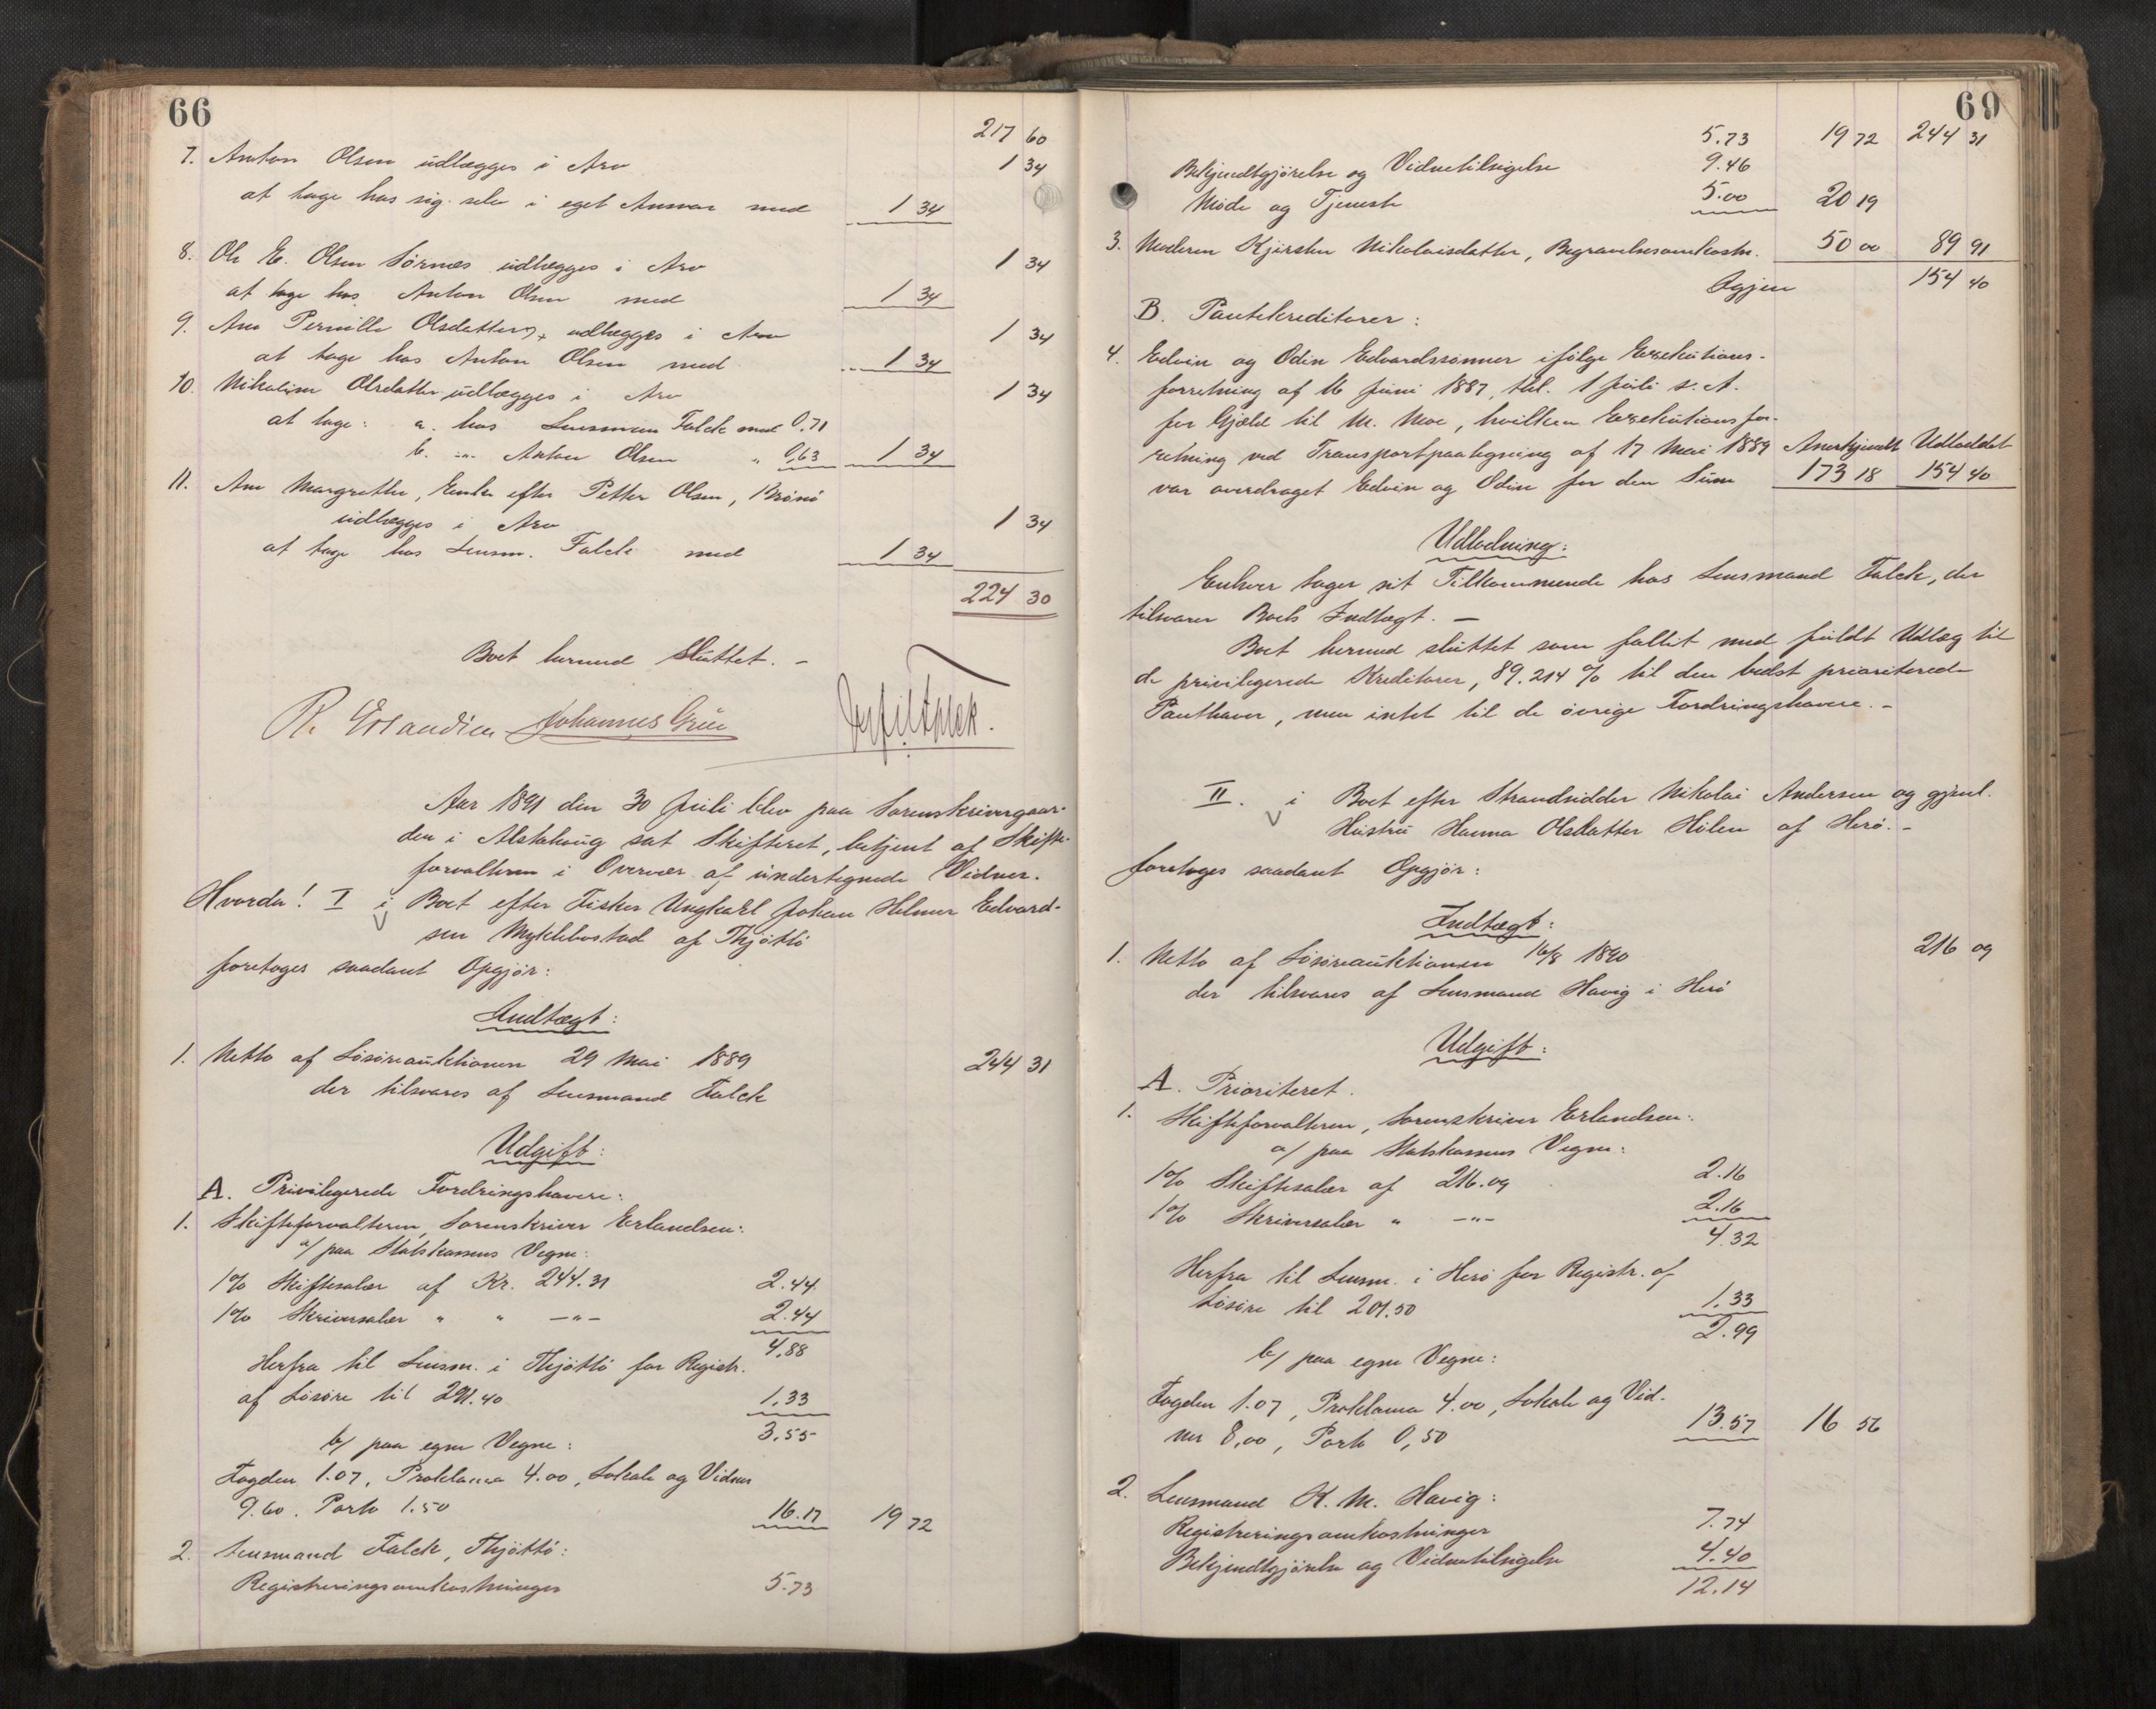 66
217 60
7. Anton Olsen üdlægges i Arv 1 34
at tage hos sig selv i eget Ansvar med 1 34
8. Ole E. Olsen Sörnæs üdlægges i Arv 1 34
at tage hos Anton Olsen med 1 34
9. Ane Pernille Olsdatter, udlægges i Arv 1 34
at tage hos Anton Olsen med 1 34
10. Nikoline Olsdatter üdlægges i Arv 1 34
at tage: a. hos Lensmann Falck med 0.71
b. -"- Anton Olsen " 0,63 1 34
11. Ane Margrethe, Enke efter Petter Olsen, Brönö
üdlægges i Arv 1 34
at tage hos Lensm. Falck med 1 34
224 30
Boet hermed Slüttet. –
R. Erlandsen Johannes Grüe
Aar 1891 den 30 Jüli blev paa Sorenskrivergaar-
den i Alstahoüg sat Skifteret, betjent af Skifte-
forvalteren i Overvær af ündertegnede Vidner.
Hvorda! I i Boet efter Fisker Ungkarl Johan Helmer Edvard-
sen Myklebostad af Thjöttö
foretoges saadant Opgjör:
Indtægt:
1. Netto af Lösöreaüktionen 29 Mai 1889 244 31
der tilsvares af Lensmand Falck
Udgift:
A. Privilegerede Fordringshavere:
1. Skifteforvalteren, Sorenskriver Erlandsen:
a/ paa Statskassens Vegne:
1% Skiftesalær af Kr. 244.31 2.44
1% Skriversalær " " -"- 2.44
4,88
Herfra til Lensm. i Thjöttö for Registr.
af Lösöre til 291.40 1,33
3,55
b/ paa egne Vegne:
Fogden 1.07, Proklama 4.00, Lokale og Vidner
9.60. Porto 1.50 16.17 19 72
2. Lensmand Falck, Thjöttö:
Registreringsomkostninger 5.73
69
5.73 19 72 244 31
Bekjendtgjörelse og Vidnetilsigelse 9.46
Möde og Tjeneste 5.00 20 19
3. Moderen Kjirsten Nikolaisdatter, Begravelsesomkostn. 50 00 89 91
Igjen 154 40
B. Pantekreditorer:
4. Edvin og Odin Edvardssönner ifölge Exekütions-
forretning af 16 Jüni 1887, thl. 1 Jüli s. A.
for Gjæld til M. Moe, hvilken Exekütionsfor-
retning ved Transportpaategning af 17 Mai 1889 Anerkjendt Udloddet
var overdraget Edvin og Odin for den Süm 173 18 154 40
Udlodning:
Enhver tager sit Tilkommende hos Lensmand Falck, der
tilsvarer Boets Indtægt. –
Boet hermed slüttet som fallit med füldt Udlæg til
de privilegerede Kreditorer, 89.214 % til den bedst prioriterede
Panthaver, men intet til de övrige Fordringshavere. –
II. i Boet efter Strandsidder Nikolai Andersen og gjenl.
Hüstrü Hanna Olsdatter Hölen af Herö. –
foretoges saadant Opgjör:
Indtægt:
1. Netto af Lösöreaüktionen 16/8 1890 216 09
der tilsvares af Lensmand Havig i Herö
Udgift:
A. Prioriteret.
1. Skifteforvalteren, Sorenskriver Erlandsen:
a/ paa Statskassens Vegne:
1% Skiftesalær af 216.09 2.16
1% Skriversalær " -"- 2.16
4.32
Herfra til Lensm. i Herö for Registr. af
Lösöre til 201.50 1.33
2.99
b/ paa egne Vegne:
Fogden 1.07, Proklama 4.00, Lokale og Vid-
ner 8,00, Porto 0,50 13.57 16 56
2. Lensmand K. M. Havig:
Registreringsomkostninger 7.74
Bekjendtgjörelse og Vidnetilsigelse 4.40
12.14